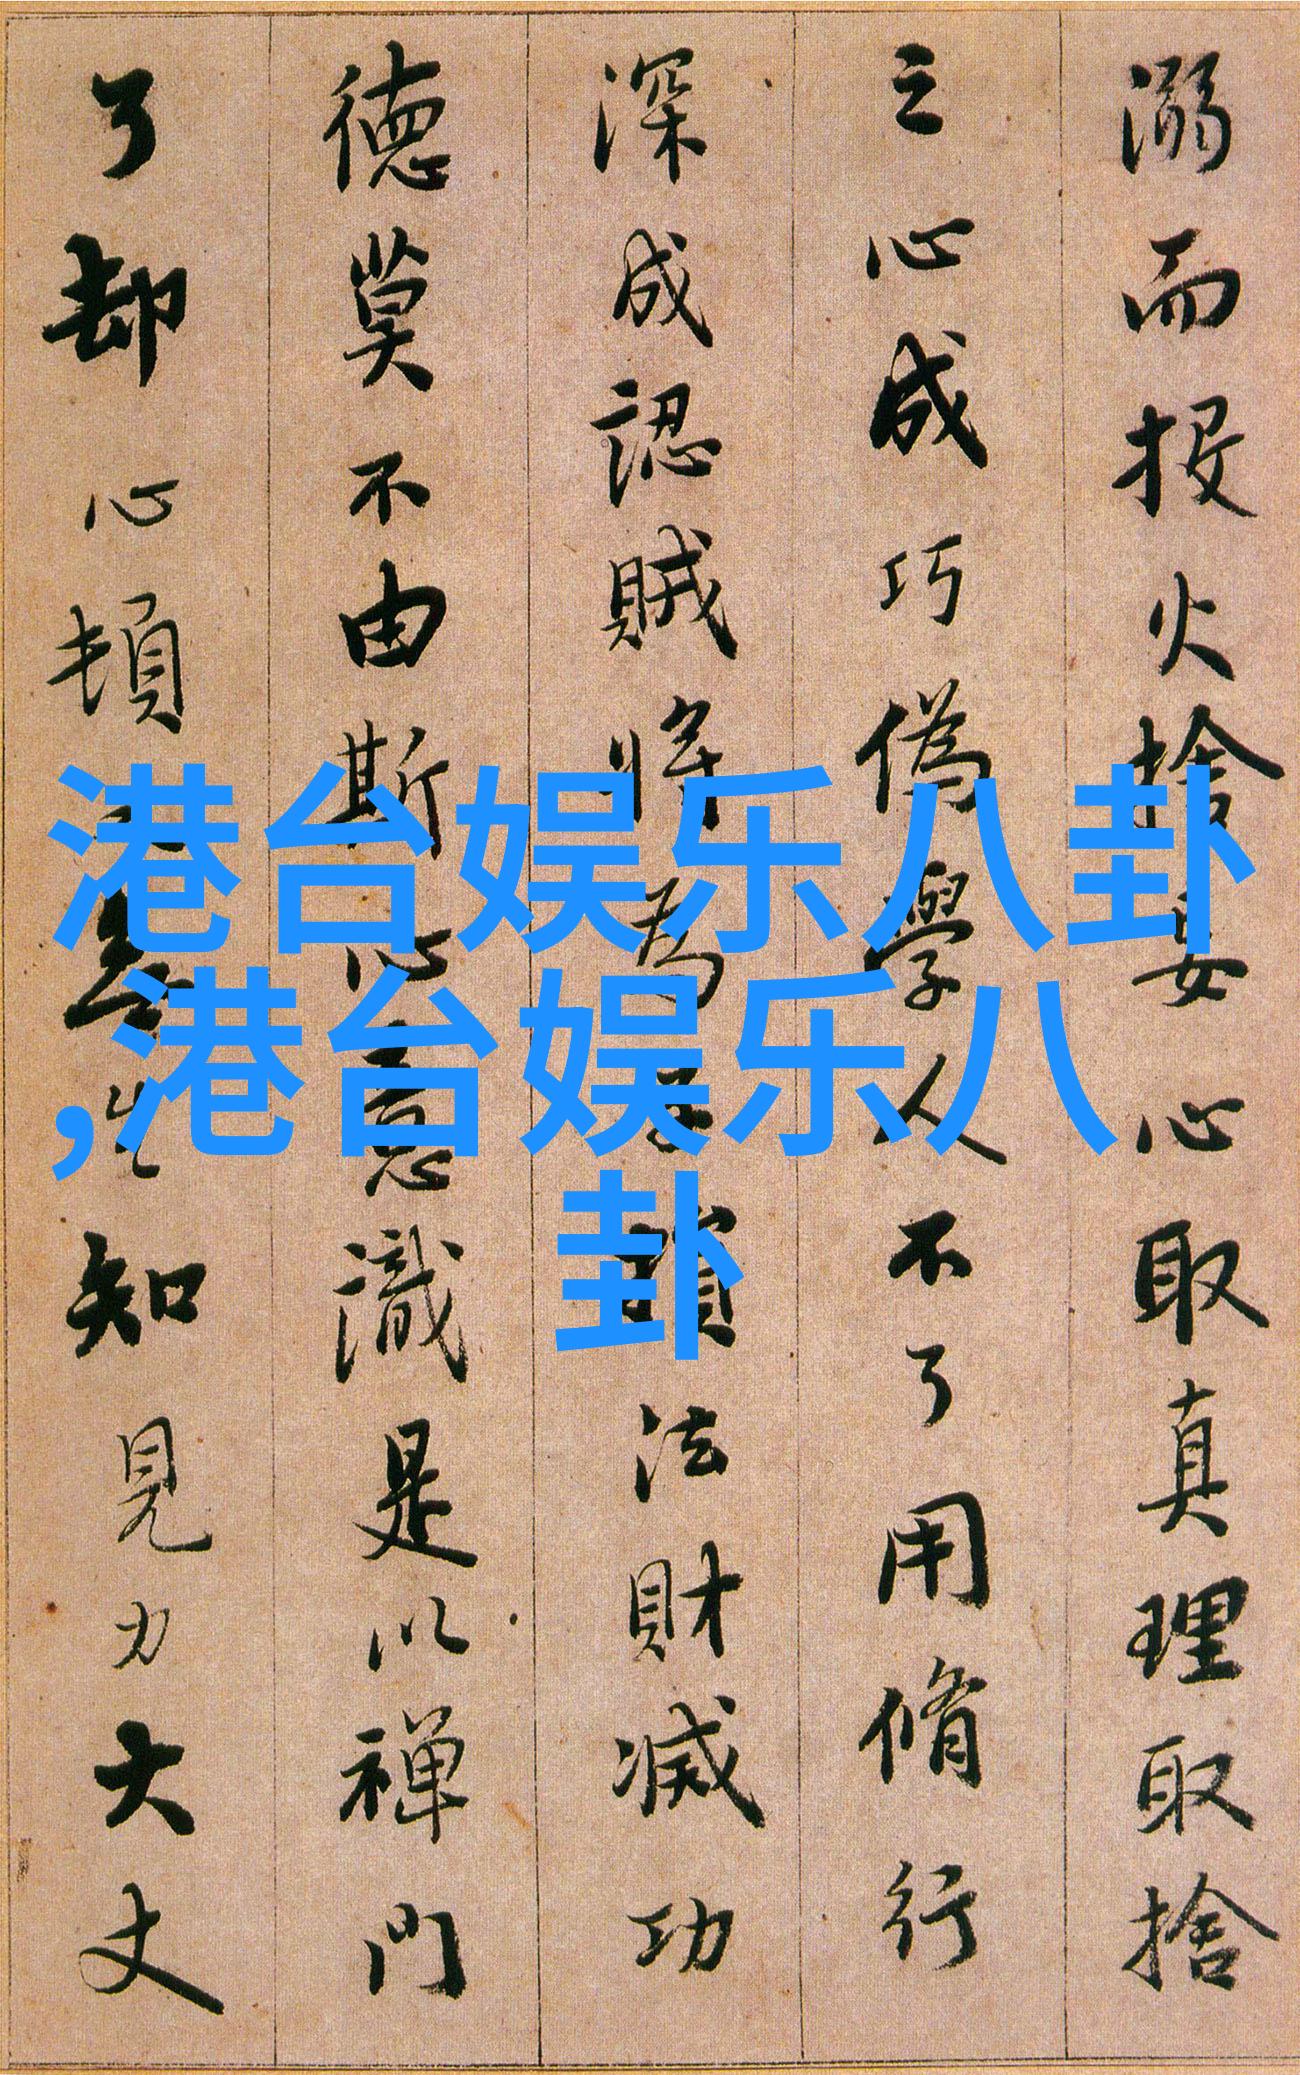 溺而投火捨妄心取真理取捨
之心成巧偽學人不了用脩行
深成認賊將為子損法財滅功
德莫不由斯心意識是以禅門
了却心頓無生知見力大丈
港台娱乐八卦
,港台娱乐八
卦